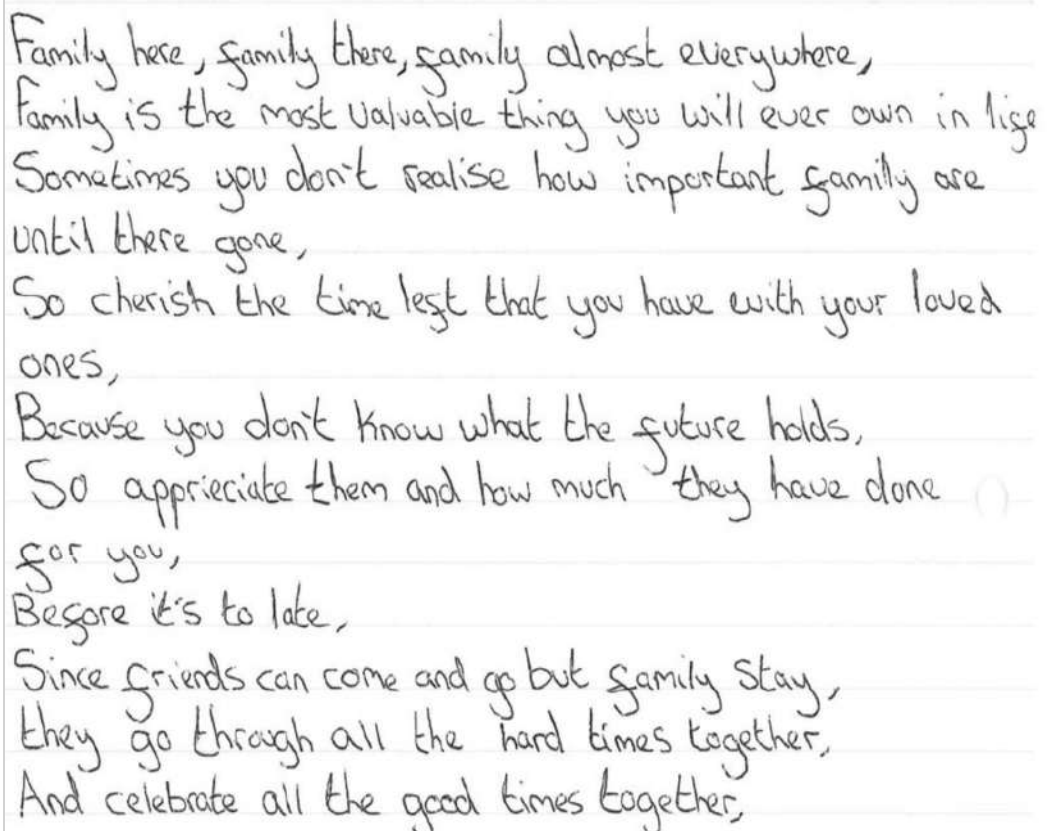 Family here, family there, family almost everywhere,
Family is the most valuable thing you will ever own in life
Sometimes you don't realise how important family are
until there gone,
So cherish the time left that you have with your loved
ones,
Because you don't know what the future holds,
So apprieciate them and how much they have done
for you,
Before it's to late,
Since friends can come and go but family stay,
they go through all the hard times together,
And celebrate all the good times together,